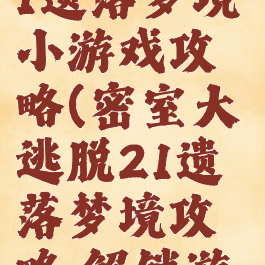 1遗落梦境
小游戏攻
略(密室大
逃脱21遗
落梦境攻
略 解锁游